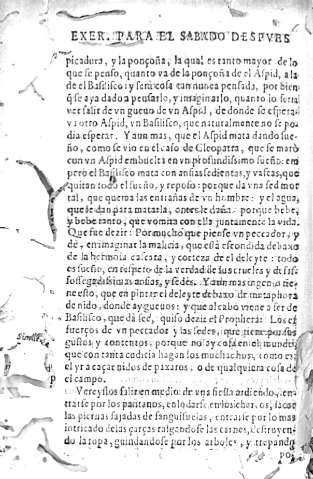 EXER. PARA EL SABADO DESPVES
picadura, y la ponçoña, la qual es tanto mayor de lo
que se penso, quanto va de la ponçoña de el Aspid, a la
de el Basilisco: y sera cosa tan nunca pensada, por bien
q̃ se aya dado a pensarlo, y imaginarlo, quanto lo seria
ver salir de vn gueuo de vn Aspid, de donde se espera
ua otro Aspid, vn Basilisco, que naturalmente no se po
dia esperar. Y aun mas, que el Aspid mata dando sue-
ño, como se vio en el caso de Cleopatra, que se mató
con vn Aspid embuelta en vn profundissimo sueño: em
pero el Basilisco mata con ansias sedientas, y vascas, que
quitan todo el sueño, y reposo: porque da vna sed mor
tal, que quema las entrañas de vn hombre: y el agua,
que le dan para matarla, entonces le daña: porque bebe,
y bebe tanto, que vomita con ella juntamente la vida.
Que fue dezir: Por mucho que piense vn peccador, y
dé, en imaginar la malicia, que està escondida debaxo
de la hermosa cascara, y corteza de el deleyte: todo
es sueño, en respeto de la verdad de sus crueles y
ansias, y sedes. Y aun mas ingenio tie-
ne esto, que en pintar el deleyte debaxo de metaphora
de nido, donde ay gueuos: y que al cabo viene a ser de
Basilisco, que dà sed, quiso dezir el Propheta: Los es
fuerços de vn peccador y las sedes, que tiene por sus
gustos, y contentos, porque no ay cosa en el mundo,
que con tanta cudicia hagan los muchachos, como es
el yr a caçar nidos de paxaros, o de qualquiera cosa de
el campo.
Vereyslos salir en medio de vna siesta ardiendo, en-
trarse por los pantanos, enlodarse, sacar
las piernas sajadas de sanguisuelas, entrarse por lo mas
intricado de las çarças rasgandose las carnes, destroyen-
do la ropa, guindandose por los arboles, y trepando
po